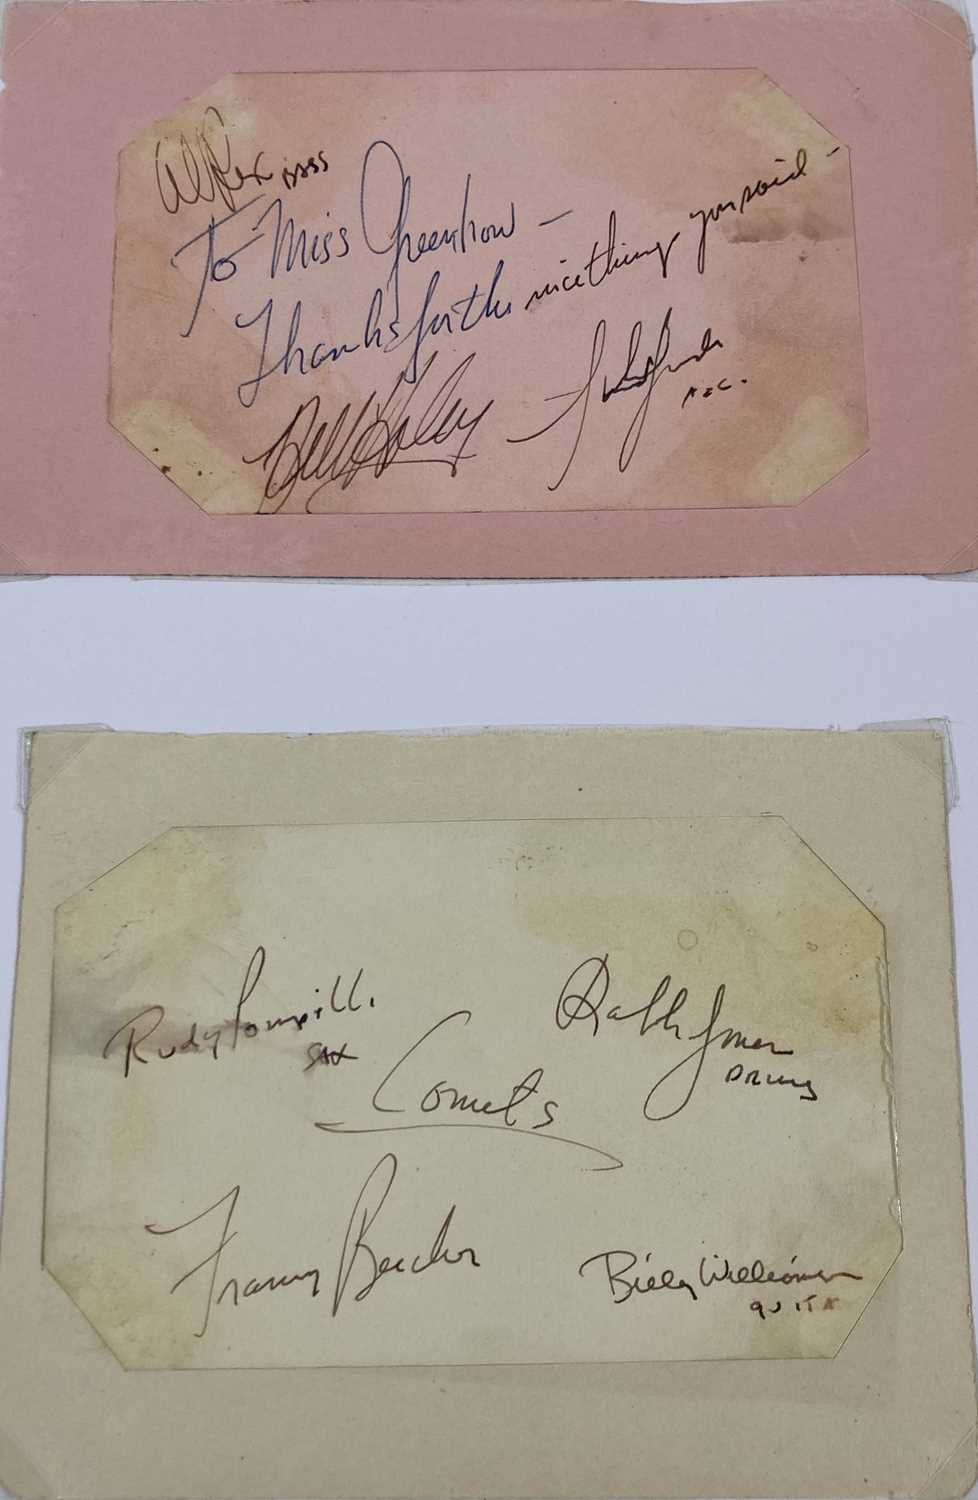 Al Rex BASS
To Miss Greenhow —
Thanks for the nice things you said —
Bill Haley
Rudy Pompilli
SAX
Ralph Jones
DRUMS
Comets
Franny Beecher
Billy Williamson
GUITAR